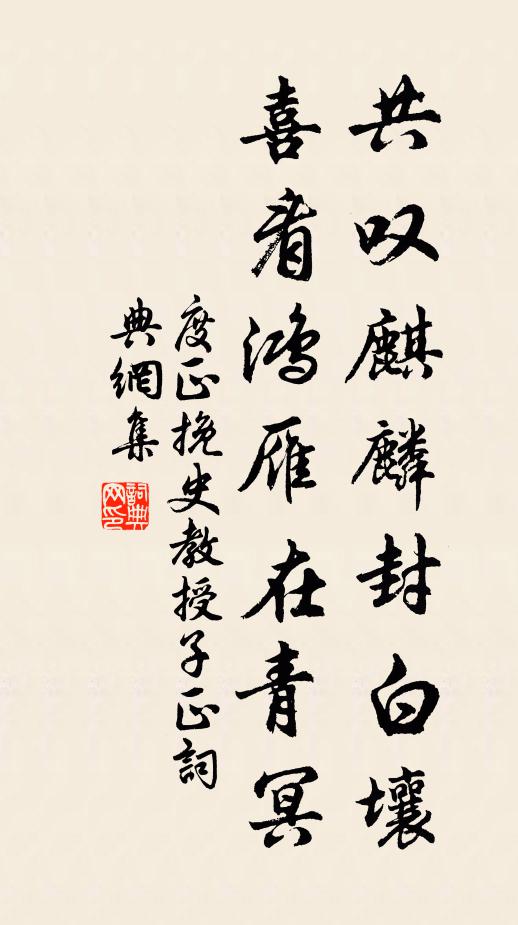 共叹麒麟封白壤
喜看鸿雁在青冥
度正挽史教授子正詞
典網集
詞典
网印